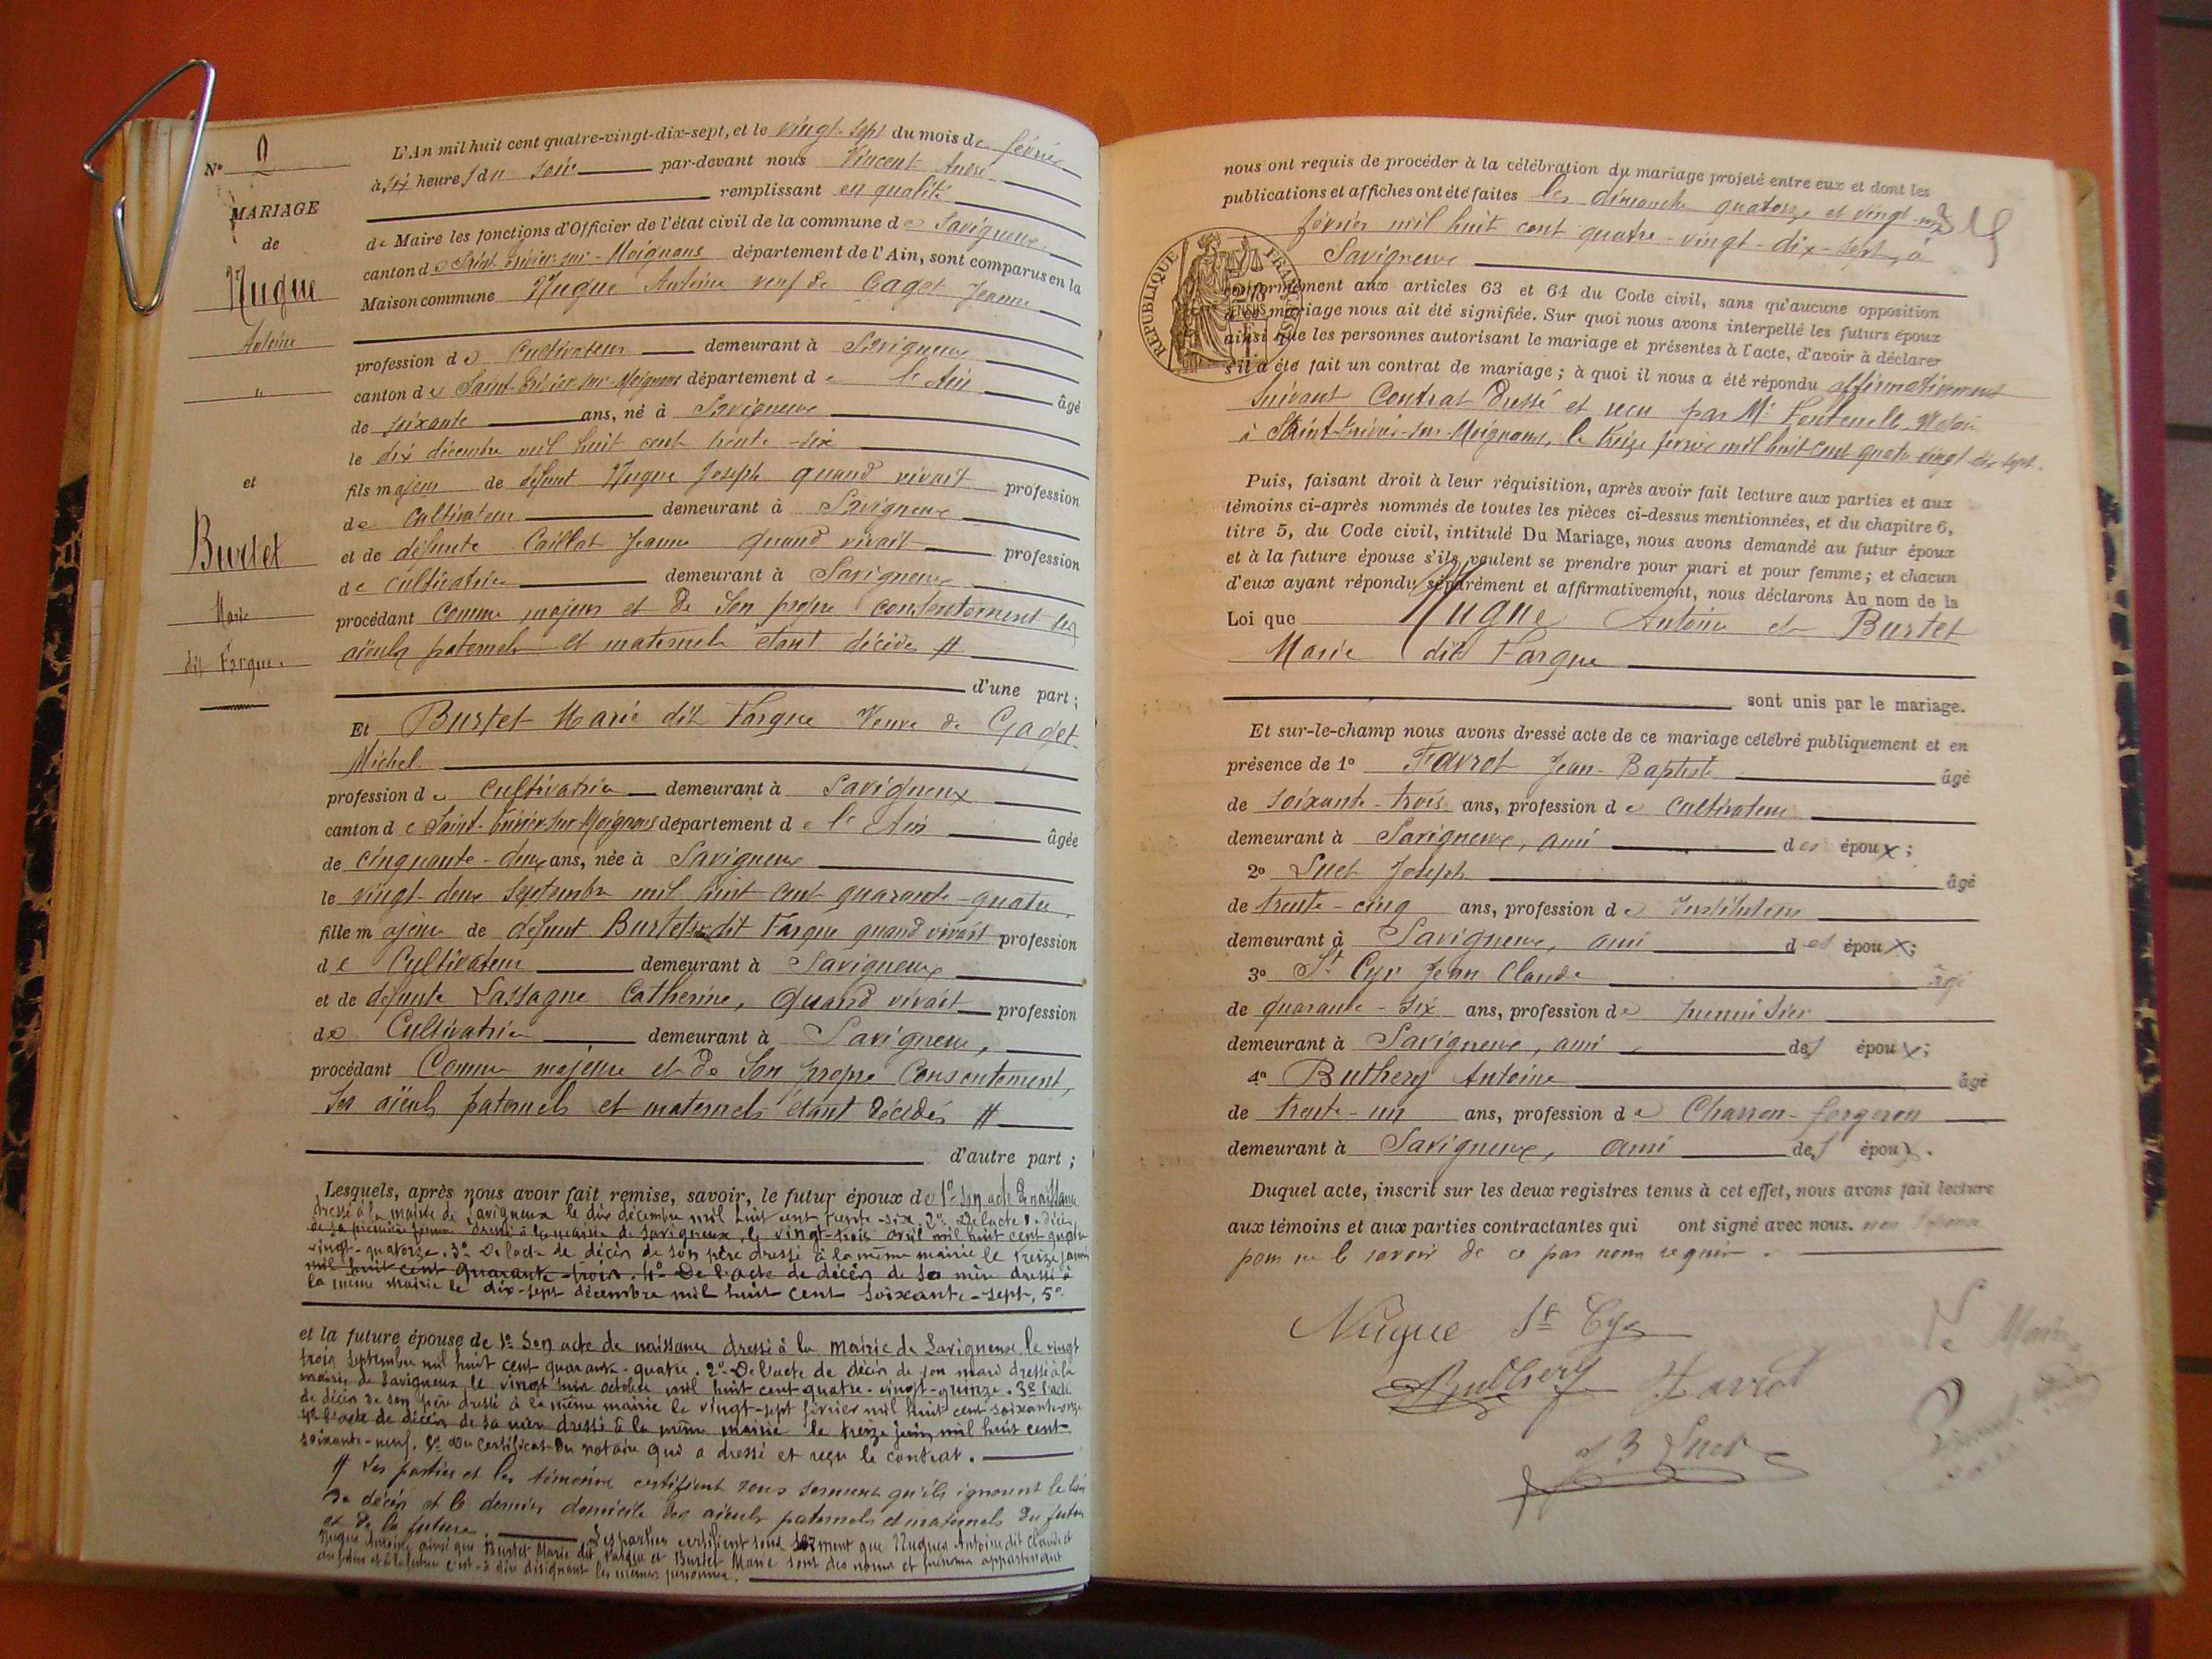 N°
MARIAGE
de
Nugue
Antoine
"
et
Burtet
Marie
dit Fargue
L'An mil huit cent quatre-vingt-dix-sept, et le vingt-sept du mois de février
à six heures du soir par-devant nous Vincent André
remplissant en qualité
de Maire les fonctions d'Officier de l'état civil de la commune de Savigneux
canton de Saint-Trivier-sur-Moignans département de l'Ain, sont comparus en la
Maison commune Nugue Antoine veuf de Gaget Jeanne
profession de Cultivateur demeurant à Savigneux
canton de Saint-Trivier-sur-Moignans département de l'Ain âgé
de soixante ans, né à Savigneux
le dix décembre mil huit cent trente-six
fils majeur de défunt Nugue Joseph quand vivait profession
de Cultivateur demeurant à Savigneux
et de défunte Caillat Jeanne quand vivait profession
de cultivatrice demeurant à Savigneux
procédant comme majeur et de son propre consentement ses
aïeuls paternels et maternels étant décédés #
d'une part ;
Et Burtet Marie dit Fargue Veuve de Gaget
Michel
profession de Cultivatrice demeurant à Savigneux
canton de Saint-Trivier-sur-Moignans département de l'Ain âgée
de cinquante-deux ans, née à Savigneux
le vingt-deux septembre mil huit cent quarante-quatre
fille majeure de défunt Burtet dit Fargue quand vivait profession
de Cultivateur demeurant à Savigneux
et de défunte Lassagne Catherine, quand vivait profession
de Cultivatrice demeurant à Savigneux,
procédant Comme majeure et de Son propre Consentement,
Ses aïeuls paternels et maternels étant décédés #
d'autre part ;
Lesquels, après nous avoir fait remise, savoir, le futur époux de 1° son acte de naissance
dressé à la mairie de Savigneux le dix décembre mil huit cent trente-six. 2° De l'acte de décès
de sa première femme dressé à la mairie de Savigneux, le vingt-trois avril mil huit cent quatre
vingt-quatorze. 3° De l'acte de décès de son père dressé à la même mairie le treize janvier
mil huit cent quarante-trois. 4° De l'acte de décès de sa mère dressé à
la même mairie le dix-sept décembre mil huit cent soixante-sept, 5°
et la future épouse de 1° Son acte de naissance dressé à la mairie de Savigneux le vingt
trois septembre mil huit cent quarante-quatre. 2° De l'acte de décès de son mari dressé à la
mairie de Savigneux, le vingt huit octobre mil huit cent quatre-vingt-quinze. 3° l'acte
de décès de son père dressé à la même mairie le vingt-sept février mil huit cent soixante-onze
4° l'acte de décès de sa mère dressé à la même mairie le treize juin mil huit cent
soixante-neuf. 5° Du certificat du notaire qui a dressé et reçu le contrat.
# Les parties et les témoins certifient sous serment qu'ils ignorent le lieu
de décès et le dernier domicile des aïeuls paternels et maternels du futur
et de la future. Les parties certifient sous serment que Nugues Antoine dit Claude et
Nugue Antoine ainsi que Burtet Marie dit Fargue et Burtet Marie sont des noms et prénoms appartenant
au futur et à la future c'est-à-dire désignant les mêmes personnes.
nous ont requis de procéder à la célébration du mariage projeté entre eux et dont les
publications et affiches ont été faites les dimanche quatorze et vingt-un
février mil huit cent quatre-vingt-dix-sept, à
Savigneux
RÉPUBLIQUE FRANÇAISE
conformément aux articles 63 et 64 du Code civil, sans qu'aucune opposition
à ce mariage nous ait été signifiée. Sur quoi nous avons interpellé les futurs époux
ainsi que les personnes autorisant le mariage et présentes à l'acte, d'avoir à déclarer
s'il a été fait un contrat de mariage ; à quoi il nous a été répondu affirmativement
suivant Contrat dressé et reçu par Me Fontenelle Notaire
à Saint-Trivier-sur-Moignans, le treize février mil huit cent quatre vingt dix sept.
Puis, faisant droit à leur réquisition, après avoir fait lecture aux parties et aux
témoins ci-après nommés de toutes les pièces ci-dessus mentionnées, et du chapitre 6,
titre 5, du Code civil, intitulé Du Mariage, nous avons demandé au futur époux
et à la future épouse s'ils veulent se prendre pour mari et pour femme ; et chacun
d'eux ayant répondu séparément et affirmativement, nous déclarons Au nom de la
Loi que Nugue Antoine et Burtet
Marie dit Fargue
sont unis par le mariage.
Et sur-le-champ nous avons dressé acte de ce mariage célébré publiquement et en
présence de 1° Favrot Jean-Baptiste âgé
de soixante-trois ans, profession de cultivateur
demeurant à Savigneux, ami des époux ;
2° Luet Joseph âgé
de trente-cinq ans, profession de Instituteur
demeurant à Savigneux, ami des époux ;
3° St Cyr Jean Claude âgé
de quarante-six ans, profession de menuisier
demeurant à Savigneux, ami des époux ;
4° Buthery Antoine âgé
de trente-un ans, profession de Charron-forgeron
demeurant à Savigneux, ami des époux.
Duquel acte, inscrit sur les deux registres tenus à cet effet, nous avons fait lecture
aux témoins et aux parties contractantes qui ont signé avec nous. non l'épouse
pour ne le savoir de ce par nous requise.
Nugue St Cyr
Le Maire
Buthery Favrot
Luet